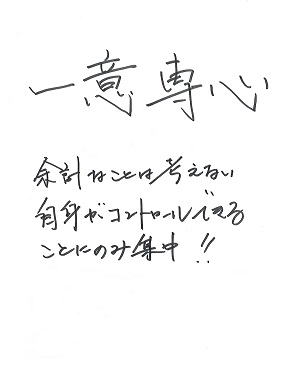 一意専心
余計なことは考えない
自身がコントロールできる
ことにのみ集中!!